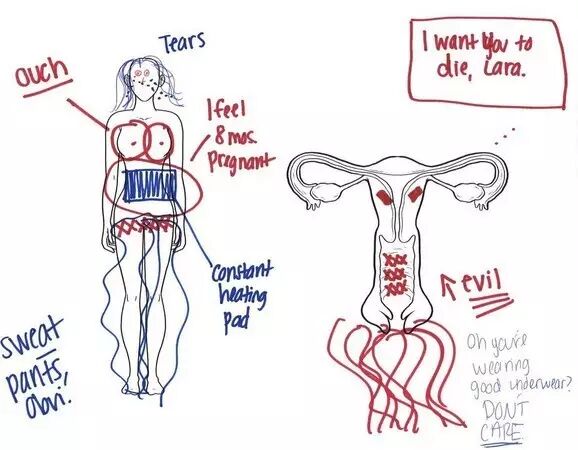 Tears
ouch
I feel
8 mos.
pregnant
constant
heating
pad
sweat
pants,
obvi!
I want you to
die, Lara.
evil
Oh you're
wearing
good underwear?
DON'T
CARE